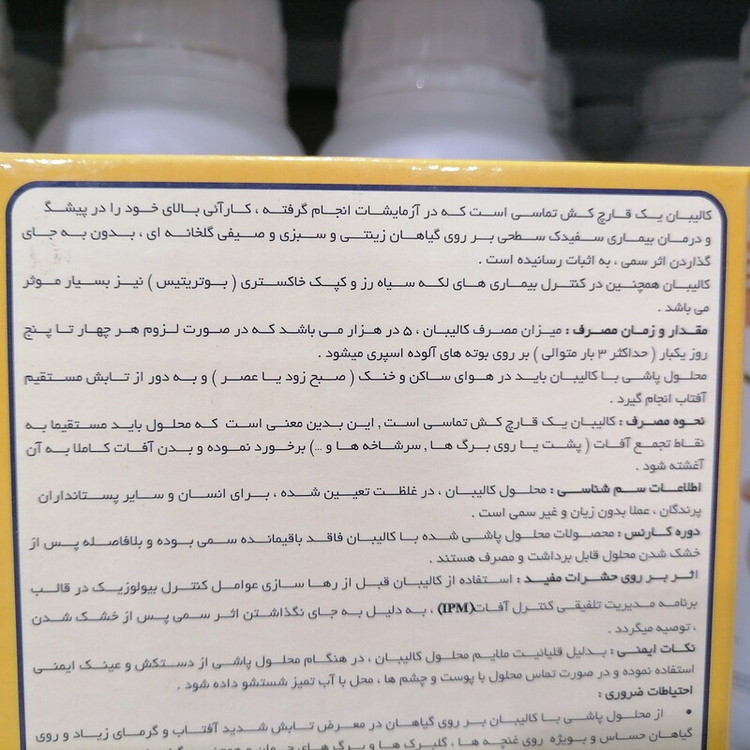 کالیبان یک قارچ کش تماسی است که در آزمایشات انجام گرفته ، کارآئی بالای خود را در پیشگ
و درمان بیماری سفیدک سطحی بر روی گیاهان زینتی و سبزی و صیفی گلخانه ای ، بدون به جای
گذاردن اثر سمی ، به اثبات رسانیده است .
کالیبان همچنین در کنترل بیماری های لکه سیاه رز و کپک خاکستری ( بوتریتیس ) نیز بسیار موثر
می باشد .
مقدار و زمان مصرف : میزان مصرف کالیبان ، ۵ در هزار می باشد که در صورت لزوم هر چهار تا پنج
روز یکبار ( حداکثر ۳ بار متوالی ) بر روی بوته های آلوده اسپری میشود .
محلول پاشی با کالیبان باید در هوای ساکن و خنک ( صبح زود یا عصر ) و به دور از تابش مستقیم
آفتاب انجام گیرد .
نحوه مصرف : کالیبان یک قارچ کش تماسی است , این بدین معنی است که محلول باید مستقیما به
نقاط تجمع آفات ( پشت یا روی برگ ها , سرشاخه ها و ...) برخورد نموده و بدن آفات کاملا به آن
آغشته شود .
اطلاعات سم شناسی : محلول کالیبان ، در غلظت تعیین شده ، برای انسان و سایر پستانداران
پرندگان ، عملا بدون زیان و غیر سمی است .
دوره کارنس : محصولات محلول پاشی شده با کالیبان فاقد باقیمانده سمی بوده و بلافاصله پس از
خشک شدن محلول قابل برداشت و مصرف هستند .
اثر بر روی حشرات مفید : استفاده از کالیبان قبل از رها سازی عوامل کنترل بیولوزیک در قالب
برنامه مدیریت تلفیقی کنترل آفات(IPM) ، به دلیل به جای نگذاشتن اثر سمی پس از خشک شدن
، توصیه میگردد .
نکات ایمنی : بدلیل قلیائیت ملایم محلول کالیبان ، در هنگام محلول پاشی از دستکش و عینک ایمنی
استفاده نموده و در صورت تماس محلول با پوست و چشم ها ، محل با آب تمیز شستشو داده شود .
احتیاطات ضروری :
• از محلول پاشی با کالیبان بر روی گیاهان در معرض تابش شدید آفتاب و گرمای زیاد و روی
گیاهان حساس و بویژه روی غنچه ها ، گلبرک ها و برگ های